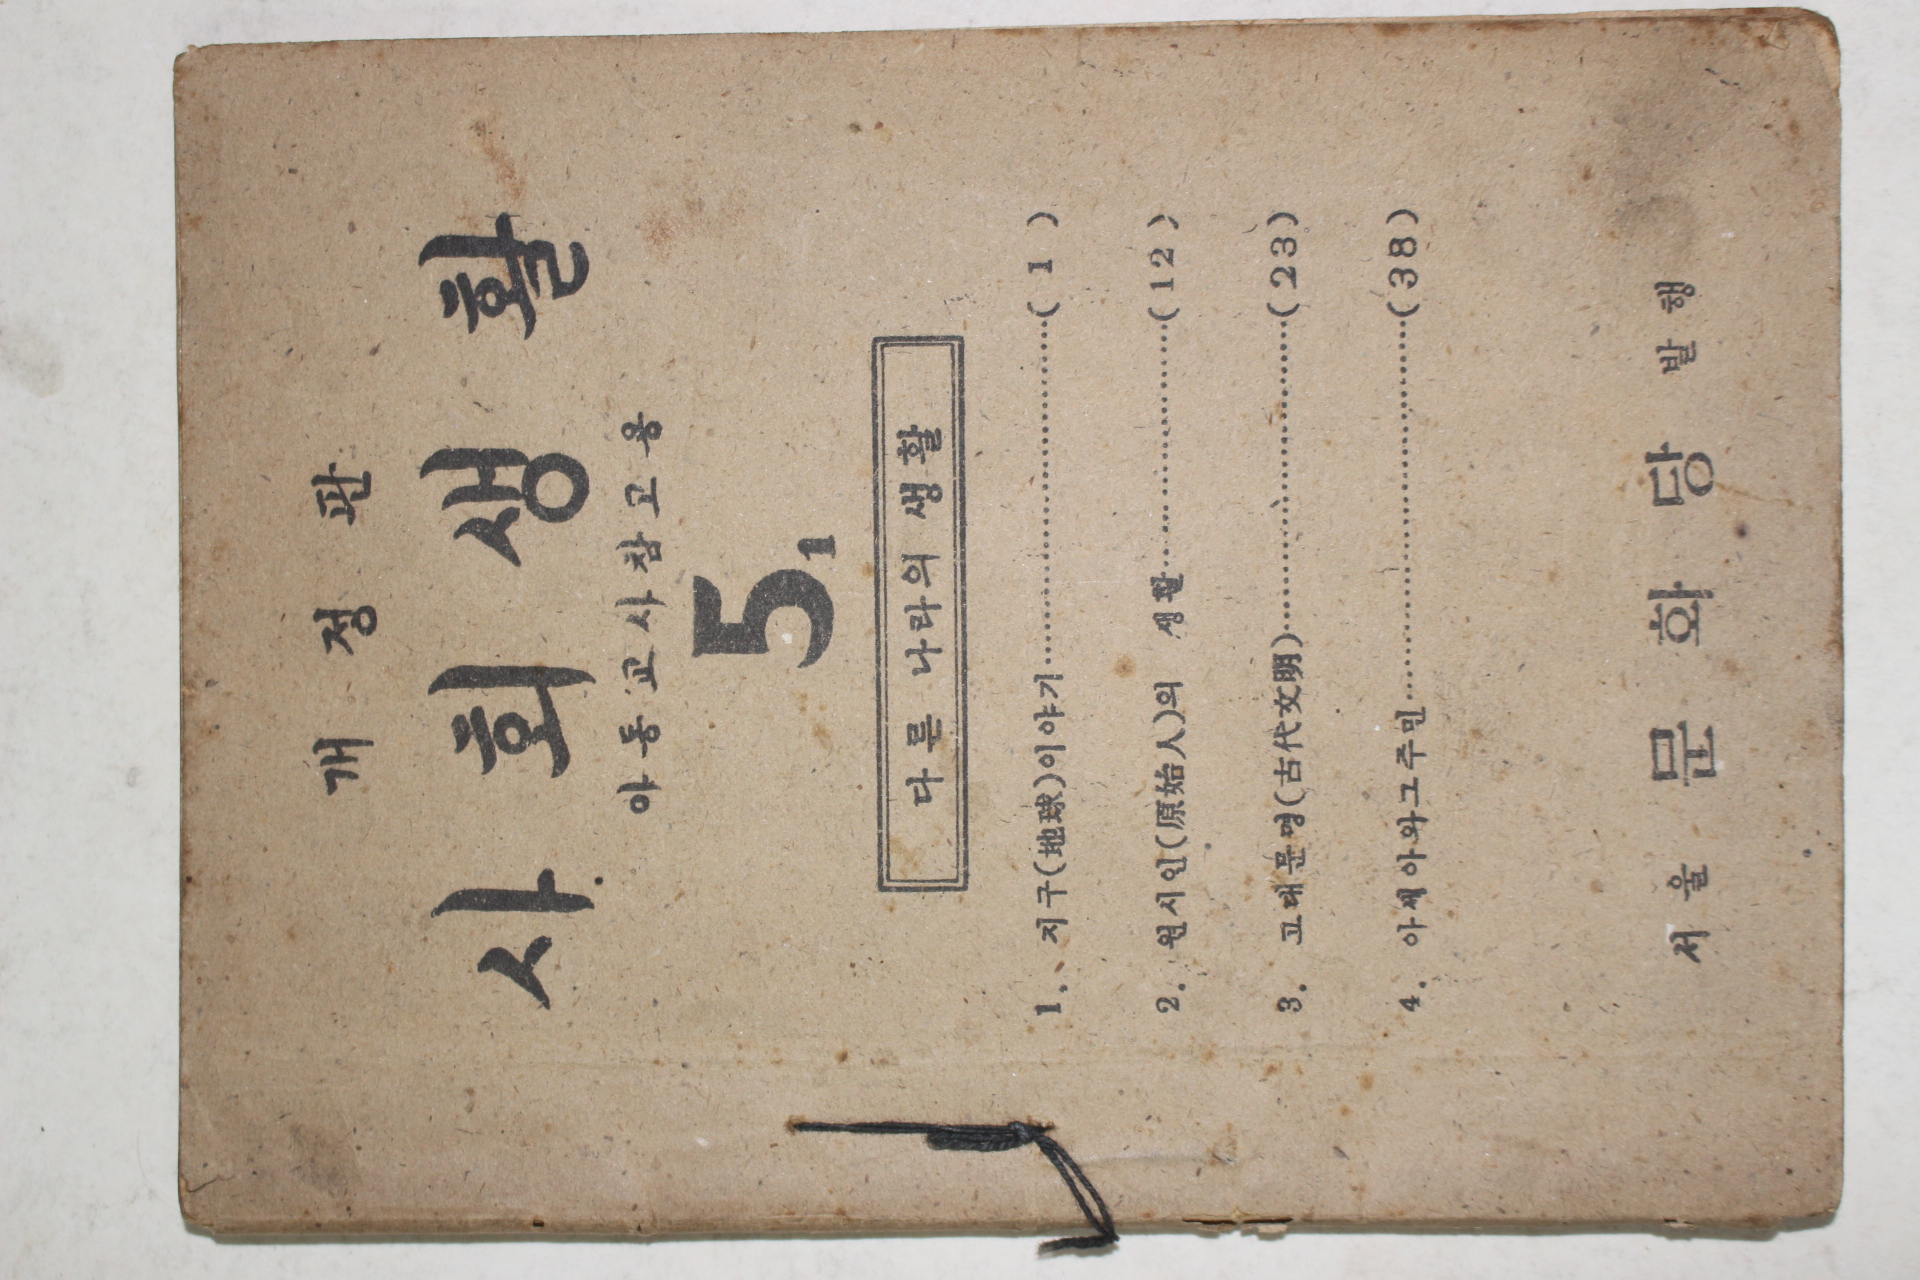 개정판
사회생활
아동교사참고용
5₁
다른 나라의 생활
1. 지구(地球)이야기……………………( 1 )
2. 원시인(原始人)의 생활……………(12)
3. 고대문명(古代文明)…………………(23)
4. 아세아와그주민………………………(38)
서울 문화당 발행